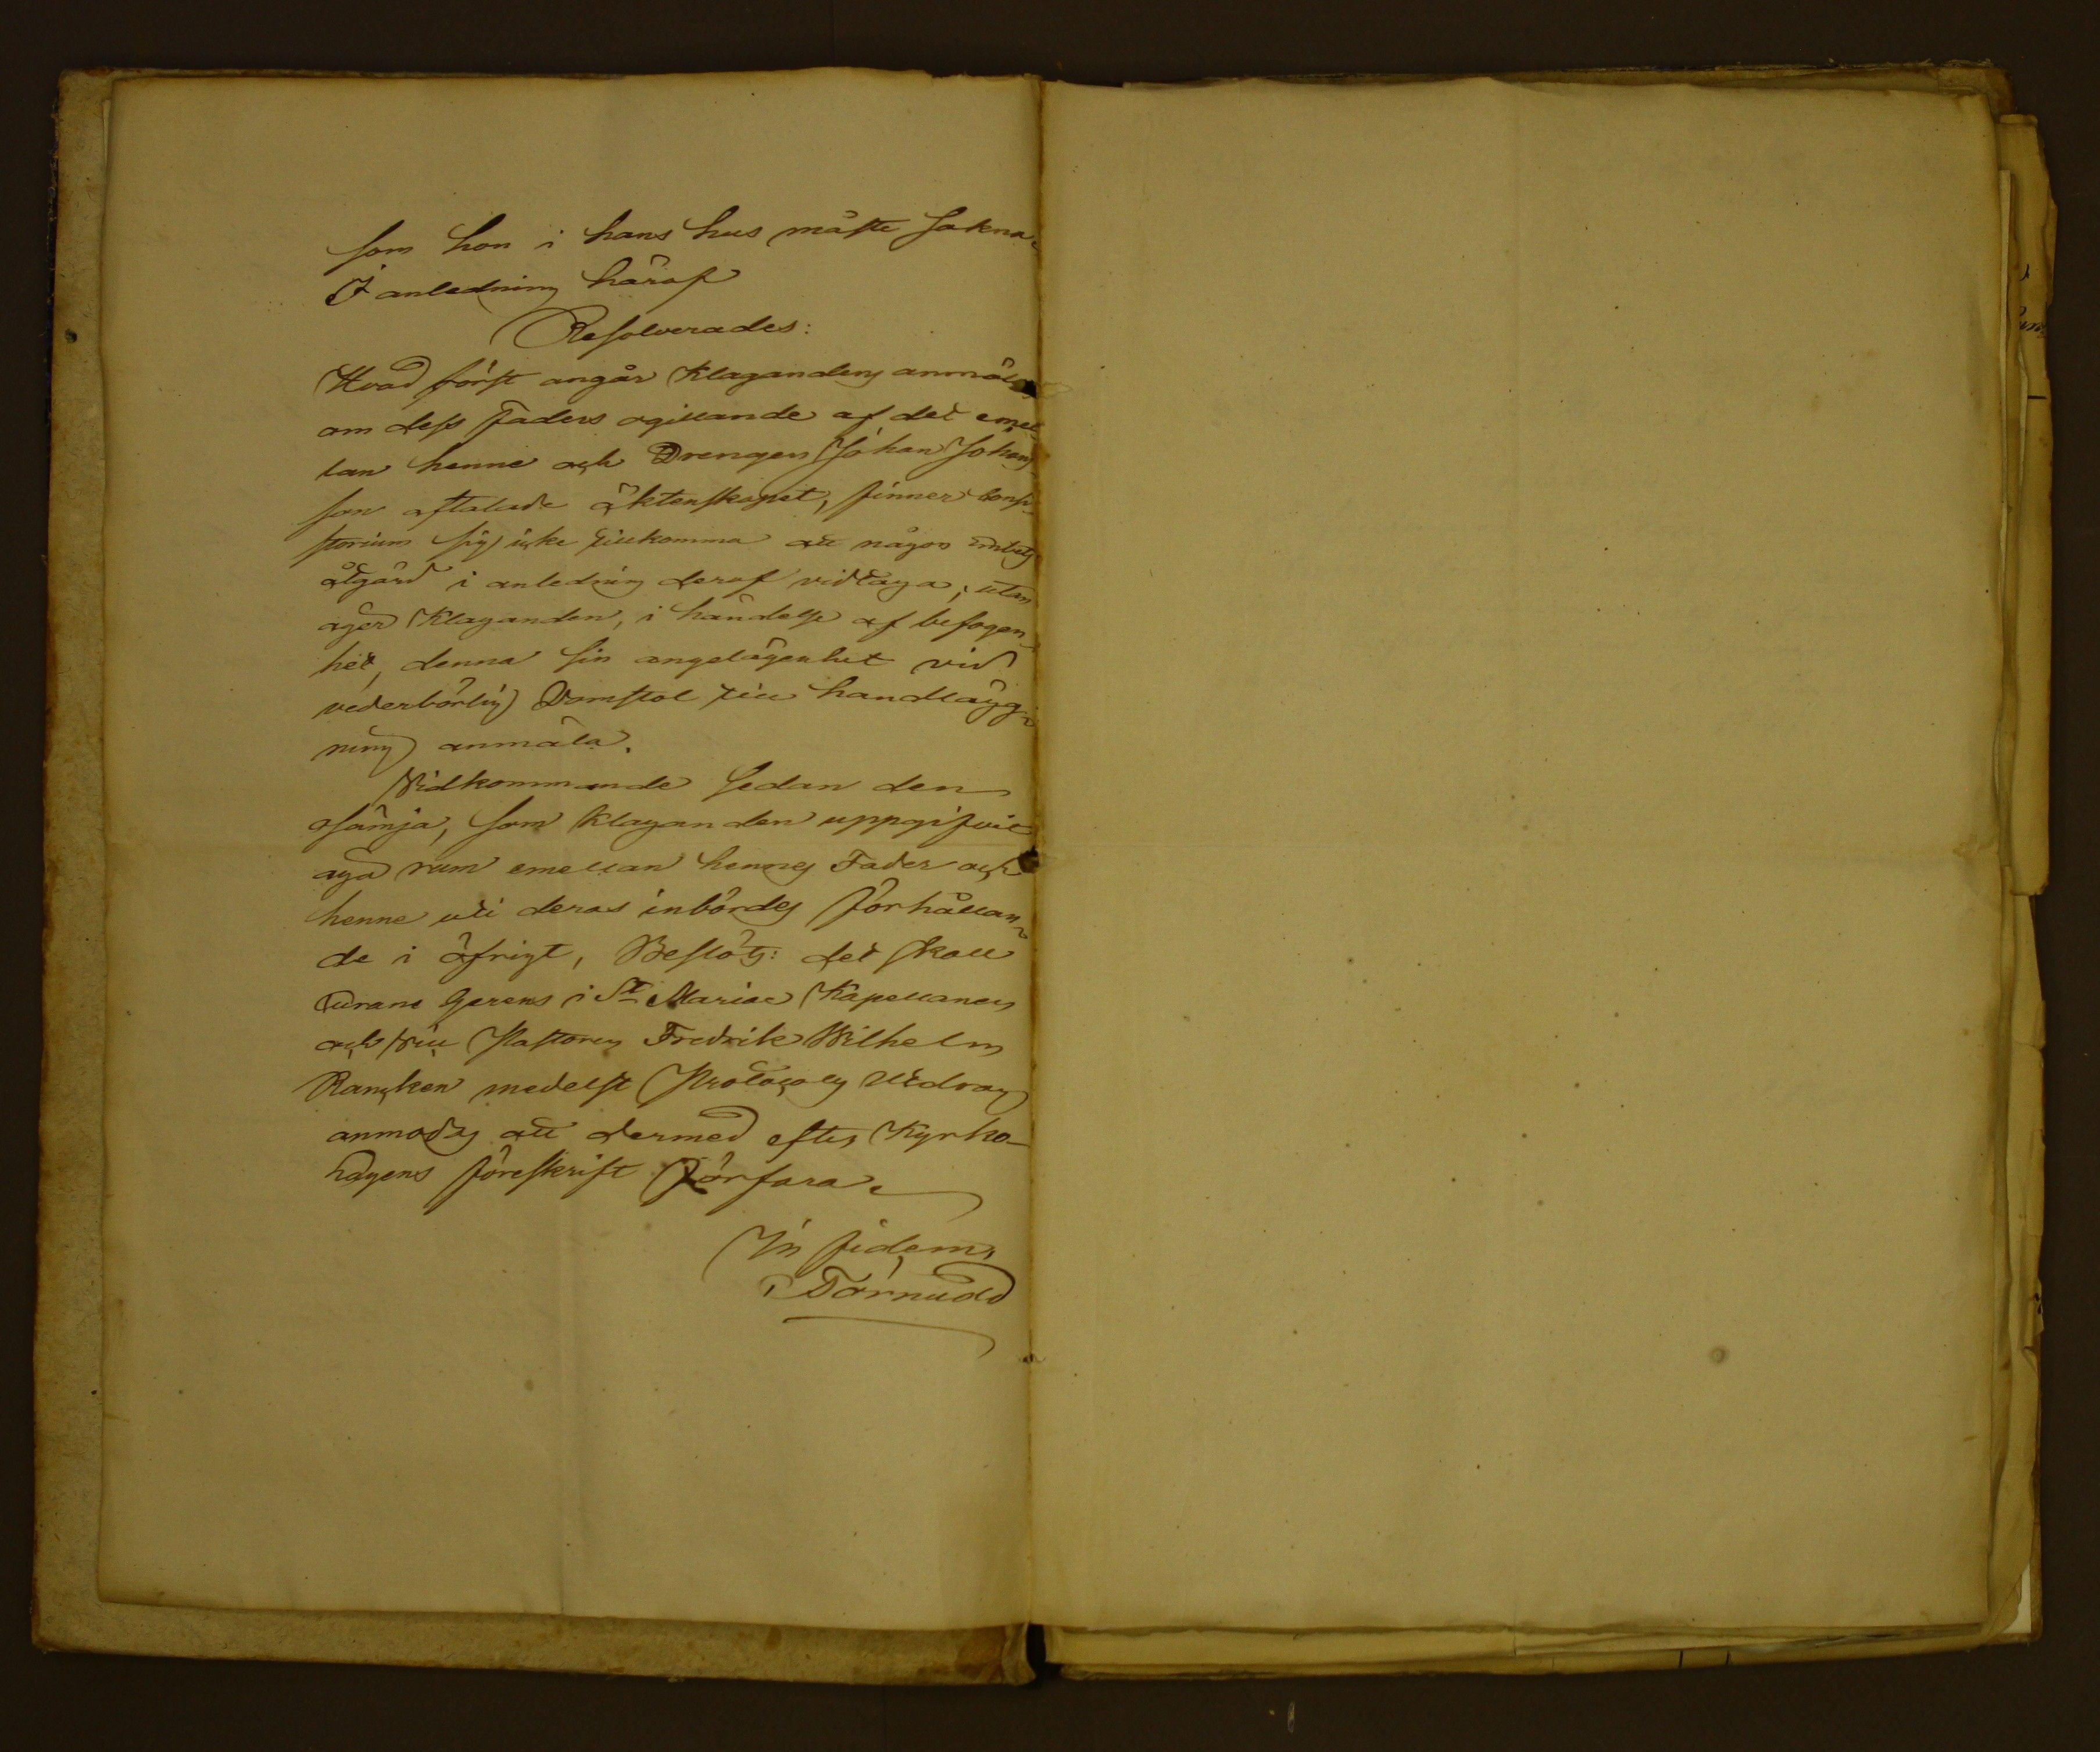 som hon i hans hus måste sakna.
I anledning häraf
Resolverades:
Hvad först angår Klagandens anmälan
om dess faders ogillande af det emel-
lan henne och Drengen Johan Johans-
son aftalade äktenskapet, finner Consi-
storium sig icke tillkomma att någon embets
åtgärd i anledning deraf vidtaga, utan
äger Klaganden, i händelse af befogen-
het, denna sin angelägenhet vid
vederbörlig Domstol till handlägg-
ning anmäla.
Vidkommande sedan den
osämja, som Klaganden uppgifvit
äga rum emellan hennes Fader och
henne uti deras inbördes förhållan-
de i öfrigt, Beslöts: det skall
Curam Gerens i St Mariae Kapellanen
och Vice Pastoren Fredrik Wilhelm
Rancken medelst Protocolls Utdrag
anmodas att dermed efter Kyrko-
lagens föreskrift förfara.
In fidem,
Törnudd